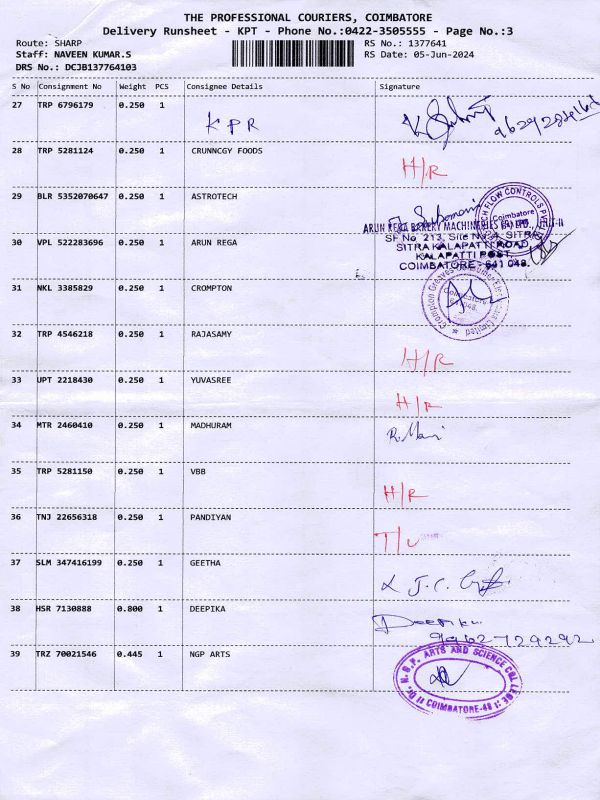 THE PROFESSIONAL COURIERS, COIMBATORE
Delivery Runsheet - KPT - Phone No.:0422-3505555 - Page No.:3
Route: SHARP
Staff: NAVEEN KUMAR.S
DRS No.: DCJB137764103
RS No.: 1377641
RS Date: 05-Jun-2024
S No Consignment No Weight PCS Consignee Details Signature
27 TRP 6796179 0.250 1 KPR
28 TRP 5281124 0.250 1 CRUNNCGY FOODS H/R
29 BLR 5352070647 0.250 1 ASTROTECH
FLOW CONTROLS
Coimbatore
30 VPL 522283696 0.250 1 ARUN REGA
ARUN REGA BAKERY MACHINERIES
SF No. 213, Site No.4, SITRA
SITRA KALAPATTI ROAD,
KALAPATTI POST,
COIMBATORE - 641 048.
31 NKL 3385829 0.250 1 CROMPTON
32 TRP 4546218 0.250 1 RAJASAMY H/R
33 UPT 2218430 0.250 1 YUVASREE H/R
34 MTR 2460410 0.250 1 MADHURAM R. Mani
35 TRP 5281150 0.250 1 VBB H/R
36 TNJ 22656318 0.250 1 PANDIYAN
37 SLM 347416199 0.250 1 GEETHA
38 HSR 7130888 0.800 1 DEEPIKA Deepika
39 TRZ 70021546 0.445 1 NGP ARTS
N.G.P. ARTS AND SCIENCE COLLEGE
COIMBATORE-48